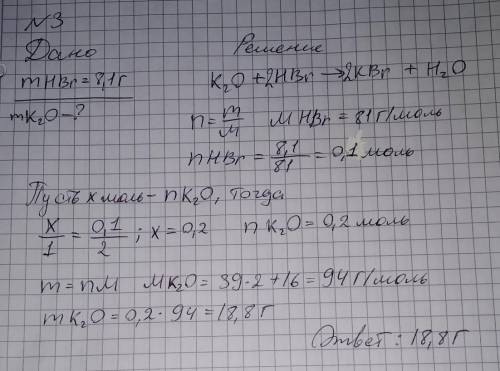 N3
Дано
Решение
mHBr = 8,1 г
K₂O + 2HBr → 2KBr + H₂O
mK₂O - ?
n = m/M  MHBr = 81 г/моль
nHBr = 8,1/81 = 0,1 моль
Пусть x моль - nK₂O, тогда
x/1 = 0,1/2 ; x = 0,2  nK₂O = 0,2 моль
m = nM  MK₂O = 39·2 + 16 = 94 г/моль
mK₂O = 0,2 · 94 = 18,8 г
Ответ: 18,8 г